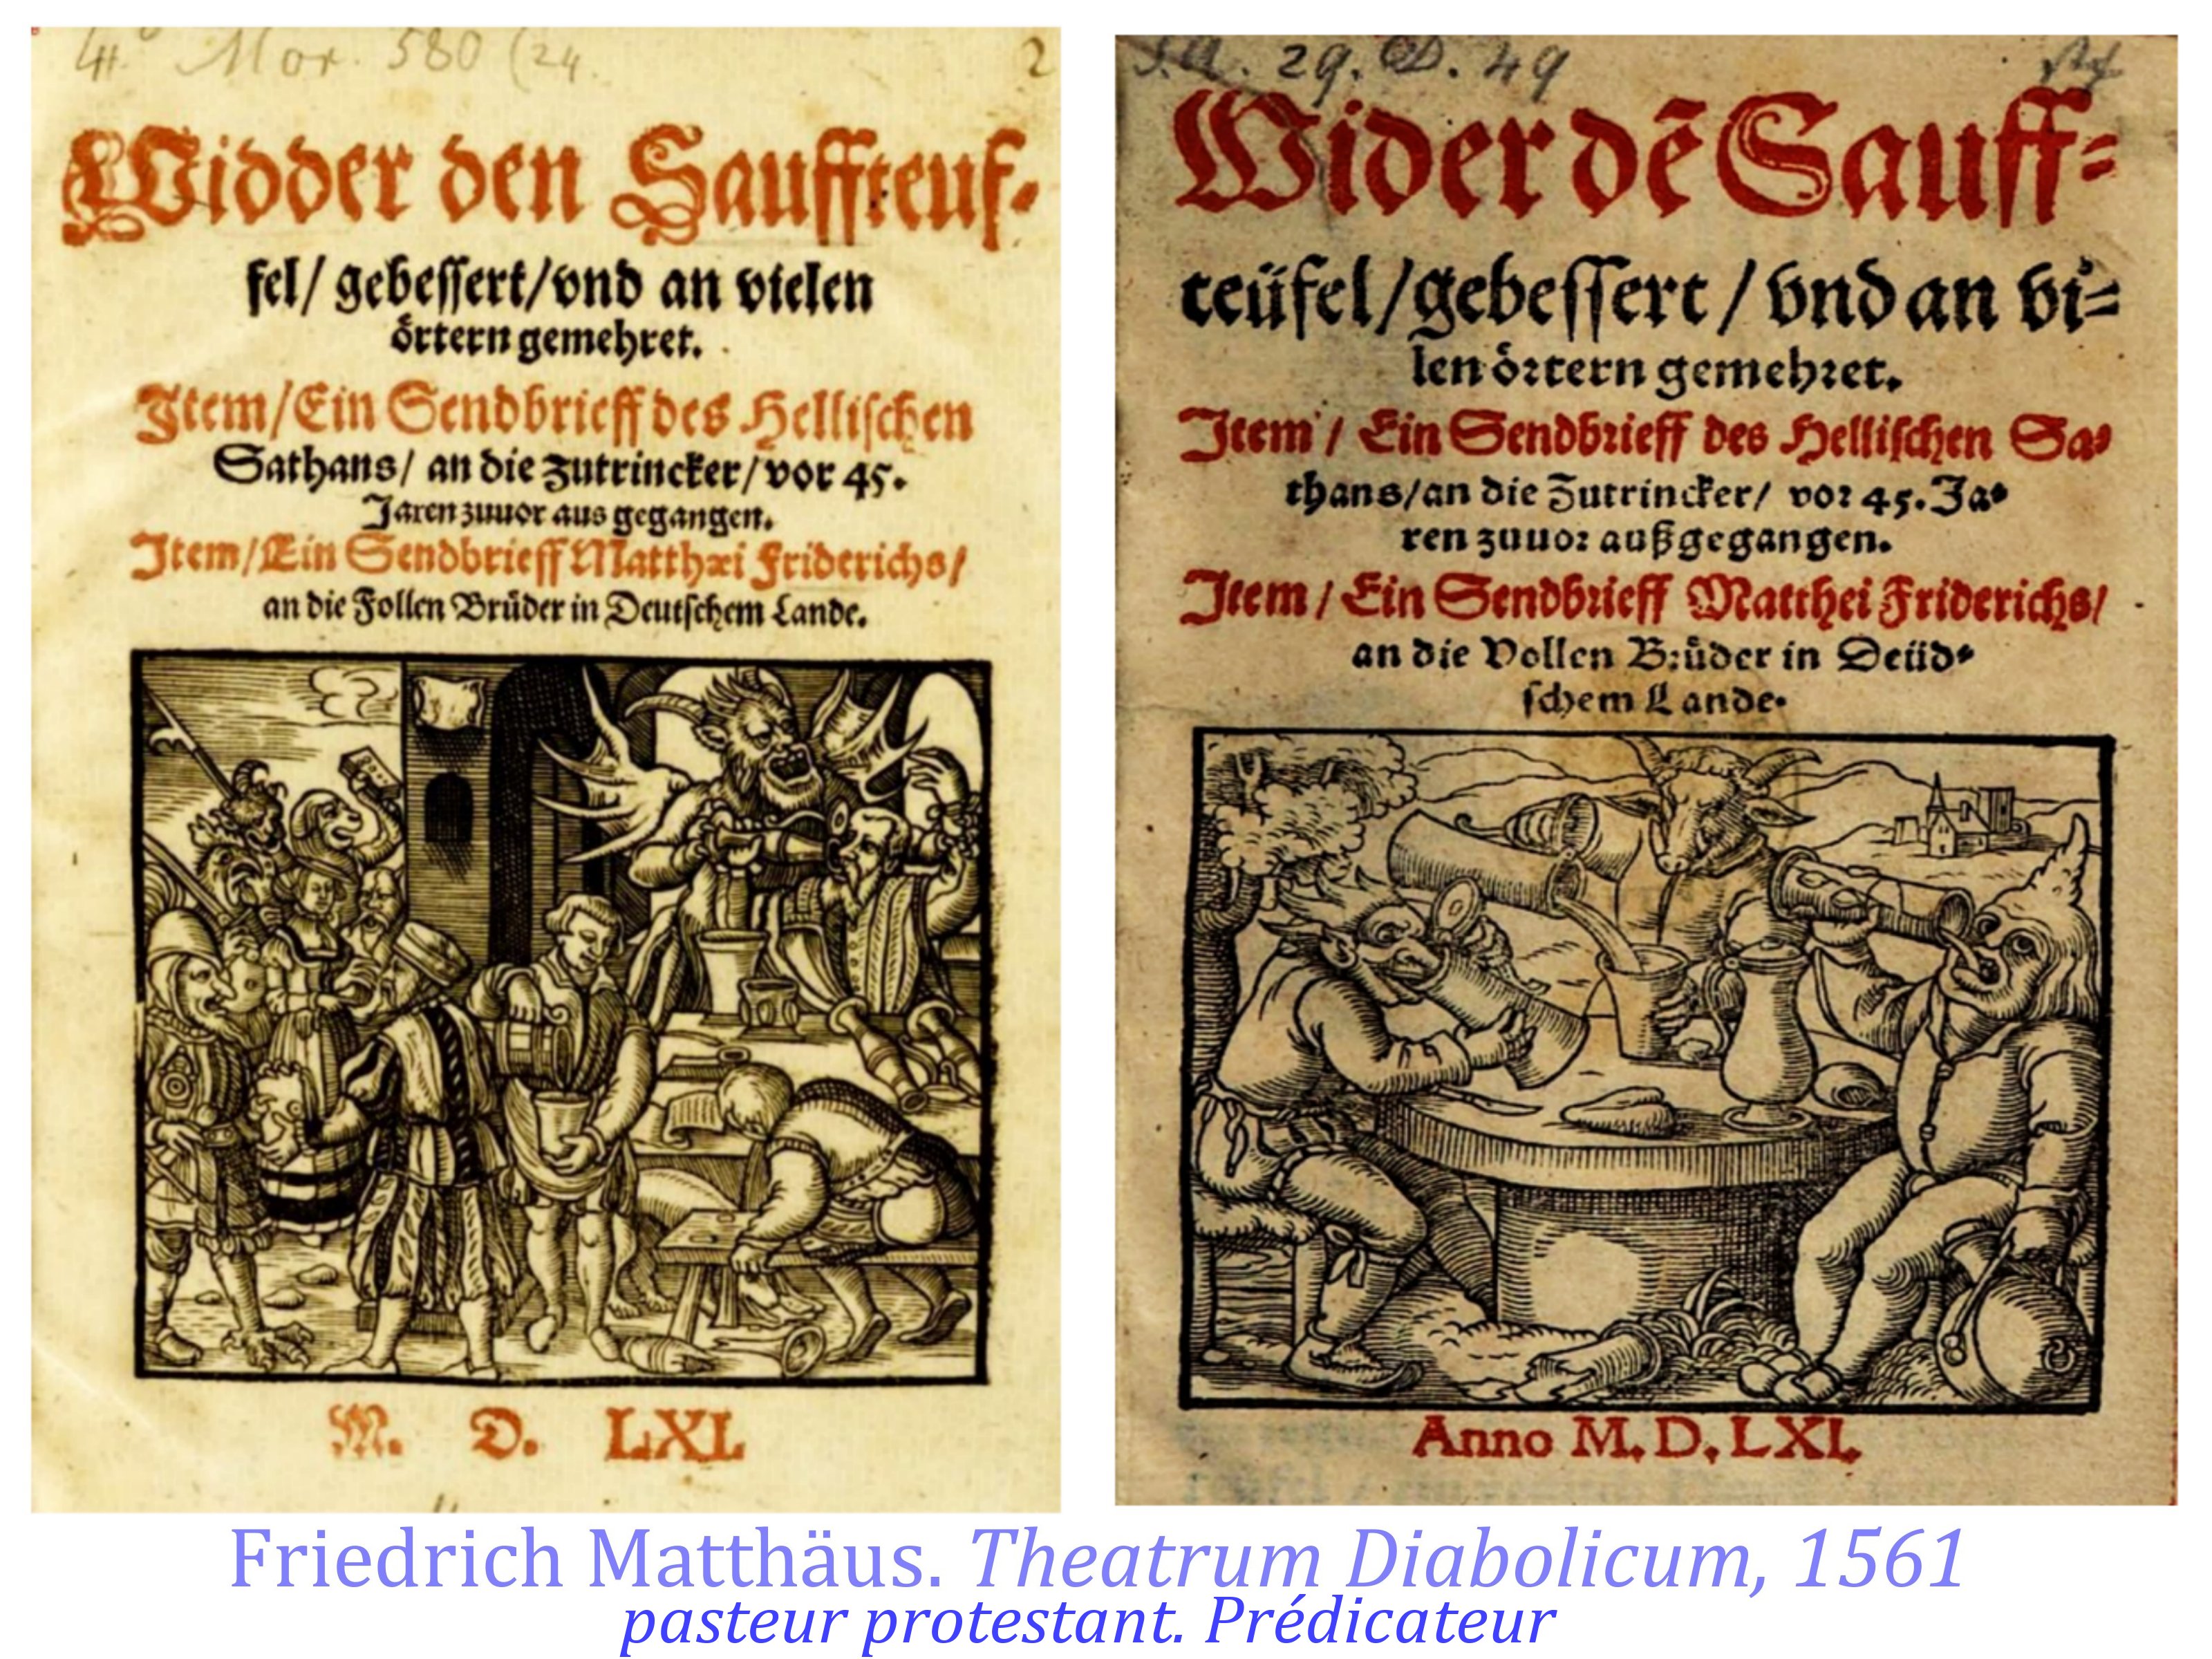 4° Mor. 580 (24.
2
Widder den Sauffteuf-
fel/ gebessert/vnd an vielen
örtern gemehret.
Item/Ein Sendbrieff des Hellischen
Sathans/ an die zutrincker/vor 45.
Jaren zuuor aus gegangen.
Item/Ein Sendbrieff Matthæi Friderichs/
an die Follen Brüder in Deutschem Lande.
M. D. LXI.
29. D. 49
Wider dē Sauff-
teüfel/gebessert/vnd an vi-
len örtern gemehret.
Item/ Ein Sendbrieff des Hellischen Sa-
thans/an die Zutrincker/ vor 45. Ja-
ren zuuor außgegangen.
Item/ Ein Sendbrieff Matthei Friderichs/
an die Vollen Brüder in Deüd-
schem Lande.
Anno M. D. LXI.
Friedrich Matthäus. Theatrum Diabolicum, 1561
pasteur protestant. Prédicateur